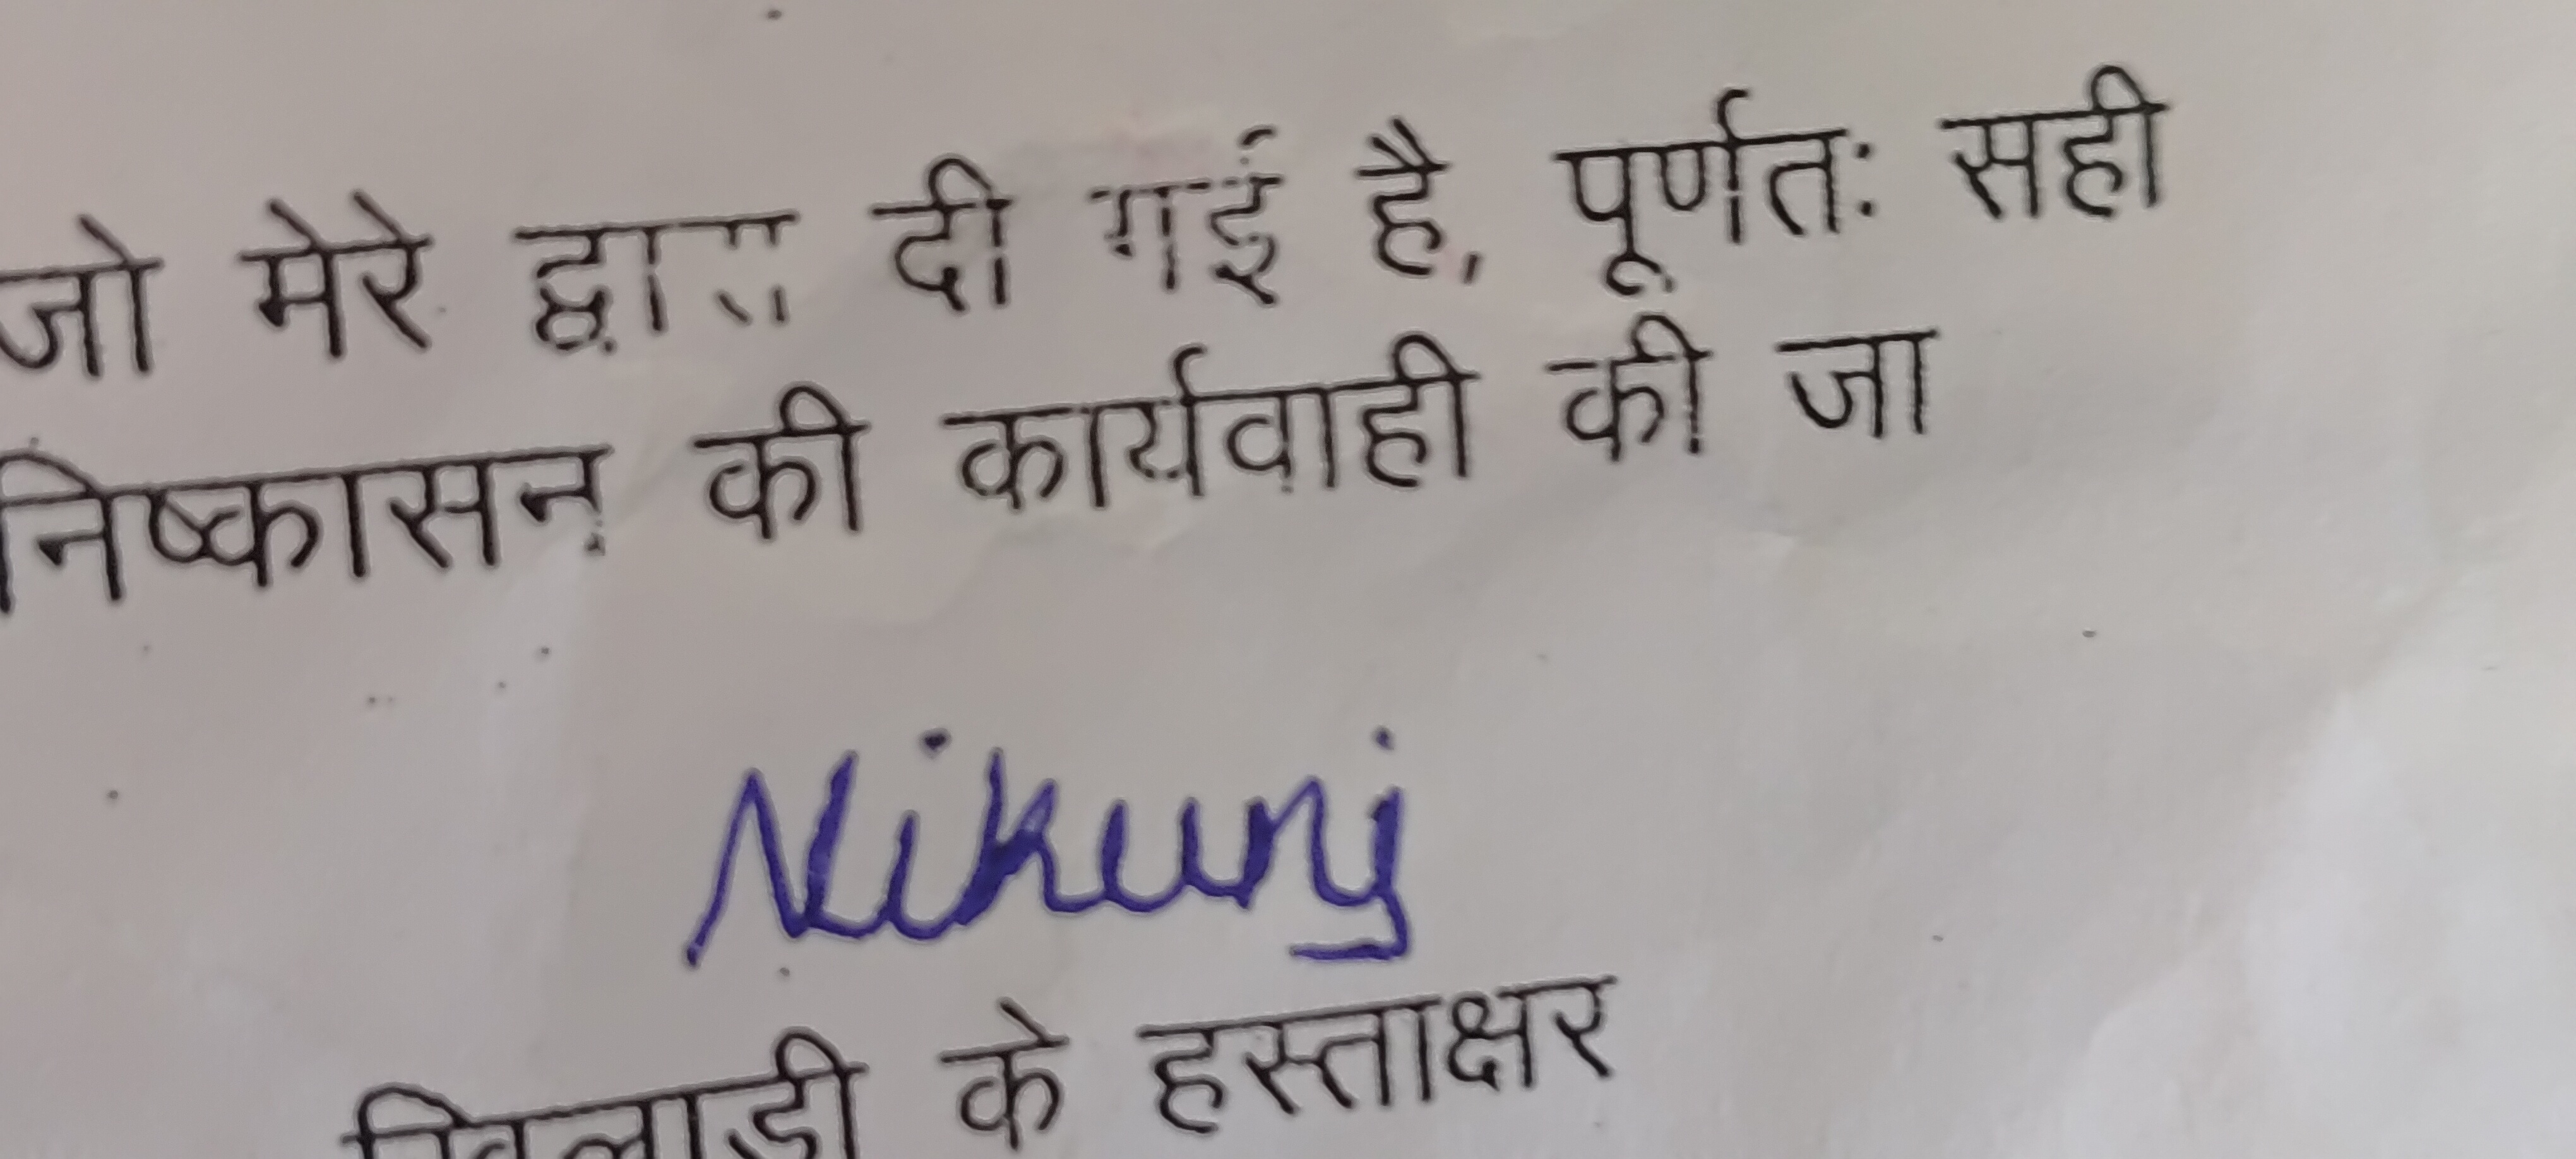 जो मेरे द्वारा दी गई है, पूर्णतः सही
निष्कासन की कार्यवाही की जा
Nikunj
खिलाडी के हस्ताक्षर